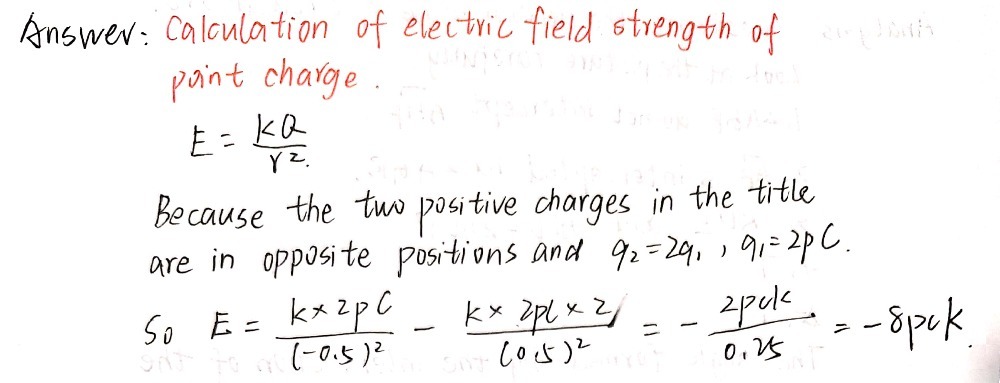 Answer: Calculation of electric field strength of
point charge.
E = kQ/r².
Because the two positive charges in the title
are in opposite positions and q₂=2q₁, q₁=2pC.
So E = k×2pC/(-0.5)² - k×2pC×2/(0.5)² = - 2pck/0.25 = -8pck